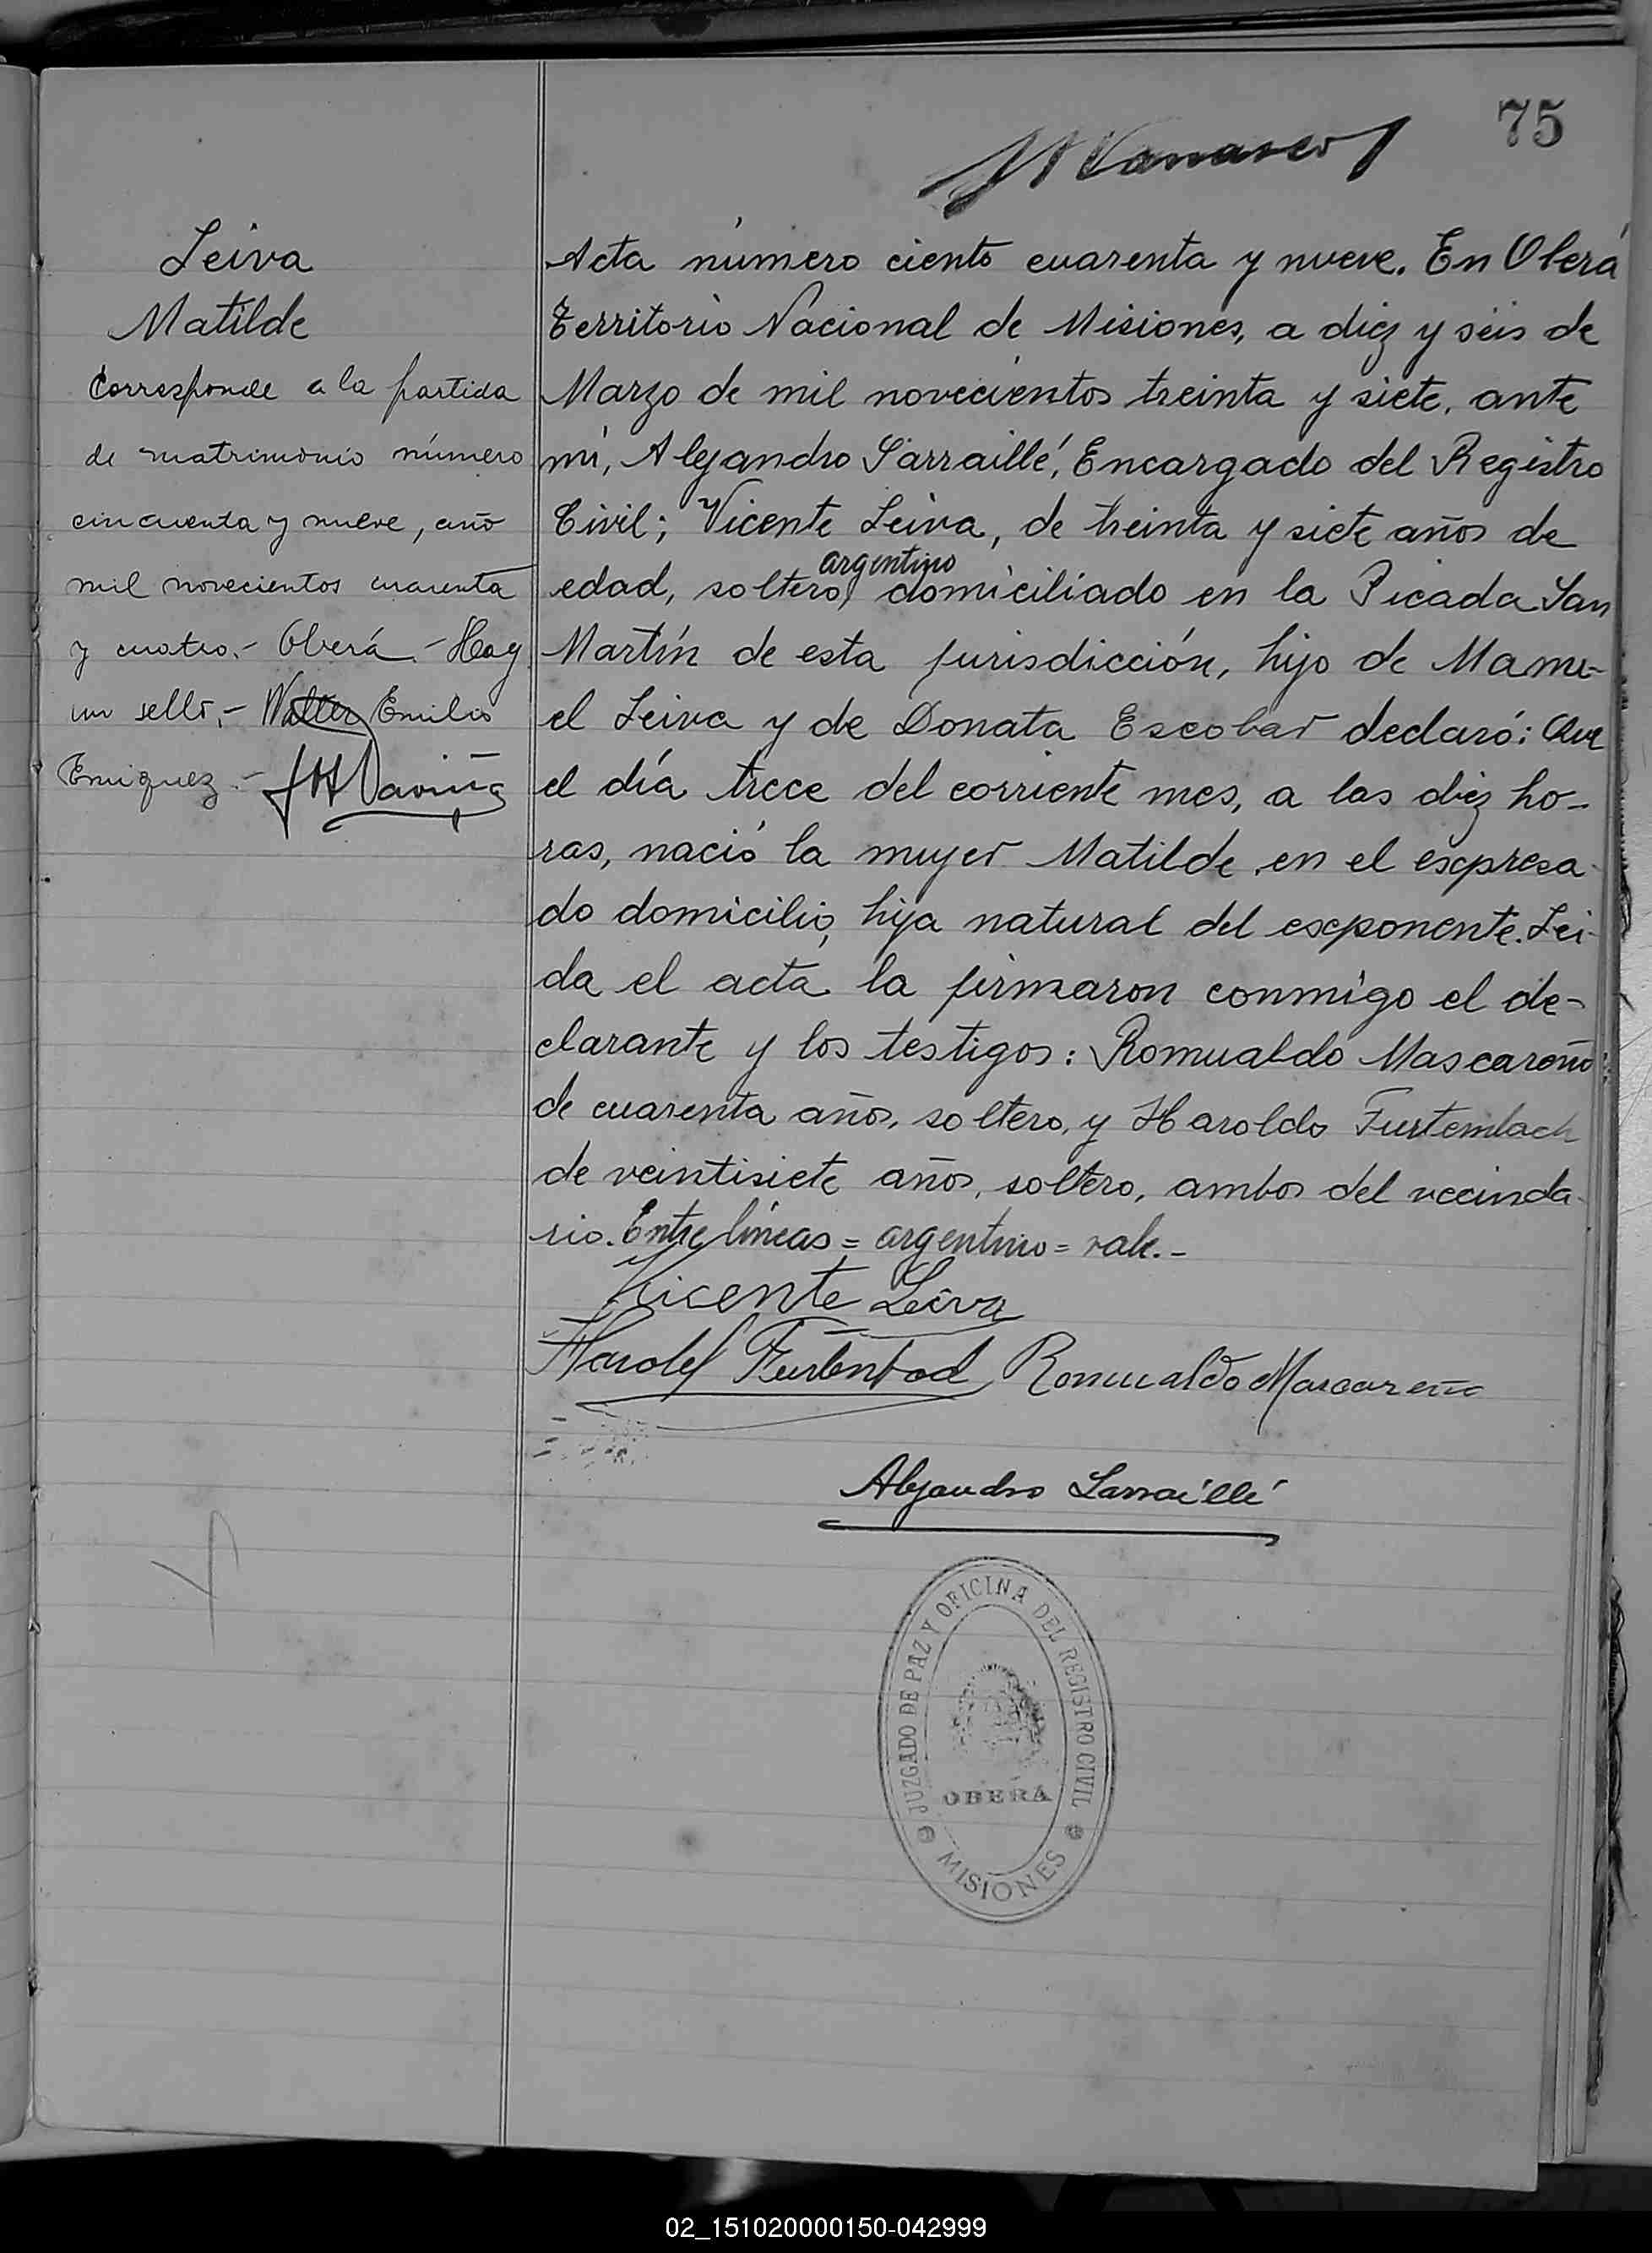 75
Leiva
Matilde
Corresponde a la partida
de matrimonio número
cincuenta y nueve, año
mil novecientos cuarenta
y cuatro.- Oberá.- Hay
un sello.- Walter Emilio
Enriquez.-
Acta número ciento cuarenta y nueve. En Oberá
Territorio Nacional de Misiones, a diez y seis de
Marzo de mil novecientos treinta y siete, ante
mí, Alejandro Sarraillé, Encargado del Registro
Civil; Vicente Leiva, de treinta y siete años de
argentino
edad, soltero, domiciliado en la Picada San
Martín de esta jurisdicción, hijo de Manu-
el Leiva y de Donata Escobar declaró: Que
el día trece del corriente mes, a las diez ho-
ras, nació la mujer Matilde en el expresa-
do domicilio, hija natural del exponente. Leí-
da el acta la firmaron conmigo el de-
clarante y los testigos: Romualdo Mascareño
de cuarenta años, soltero, y Haroldo Furtembach
de veintisiete años, soltero, ambos del vecinda-
rio. Entre líneas = argentino = vale.-
Vicente Leiva
Romualdo Mascareño
Alejandro Sarraillé
JUZGADO DE PAZ Y OFICINA DEL REGISTRO CIVIL
OBERÁ
MISIONES
02_151020000150-042999